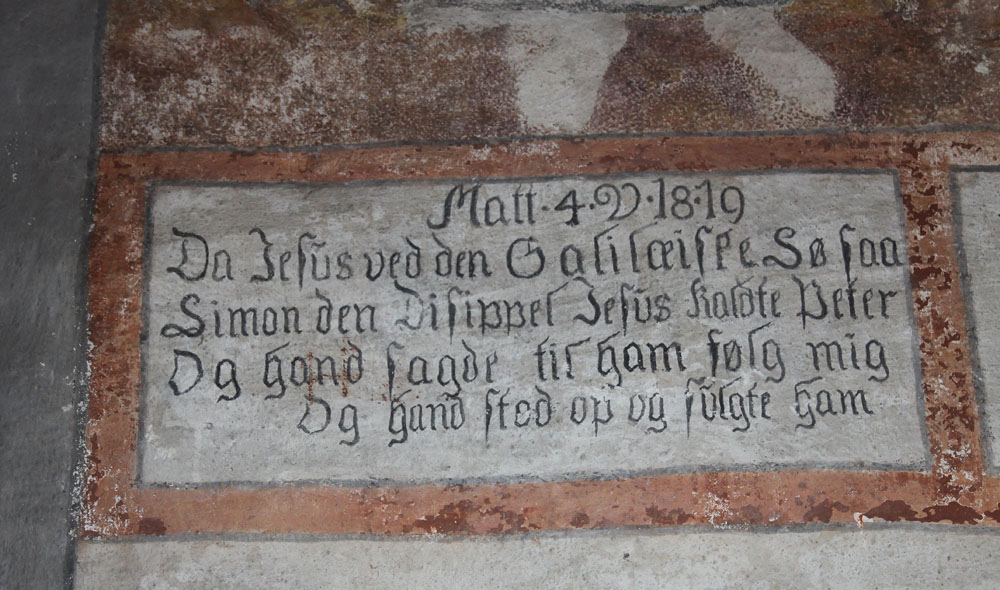 Matt. 4. V. 18. 19
Da Jesus ved den Galilæiske Sø saa
Simon den Disippel Jesus kaldte Peter
Og hand sagde til ham følg mig
Og hand stod op og fulgte ham